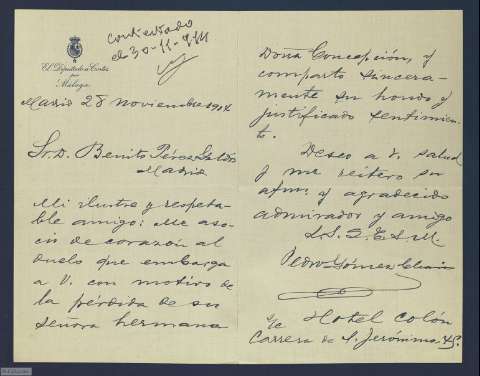 contestado
el 30-11-914
El Diputado a Cortes
por
Málaga
Madrid 28 noviembre 1914
Sr. D. Benito Pérez Galdós
Madrid
Mi ilustre y respeta-
ble amigo: Me aso-
cio de corazón al
duelo que embarga
a V. con motivo de
la pérdida de su
señora hermana
Doña Concepción, y
comparto sincera-
mente su hondo y
justificado sentimien-
to.
Deseo a V. salud
y me reitero su
afmo. y agradecido
admirador y amigo
Q.S.Q.E.S.M.
Pedro Gómez Chaix
Hotel Colón
Carrera de S. Jerónimo